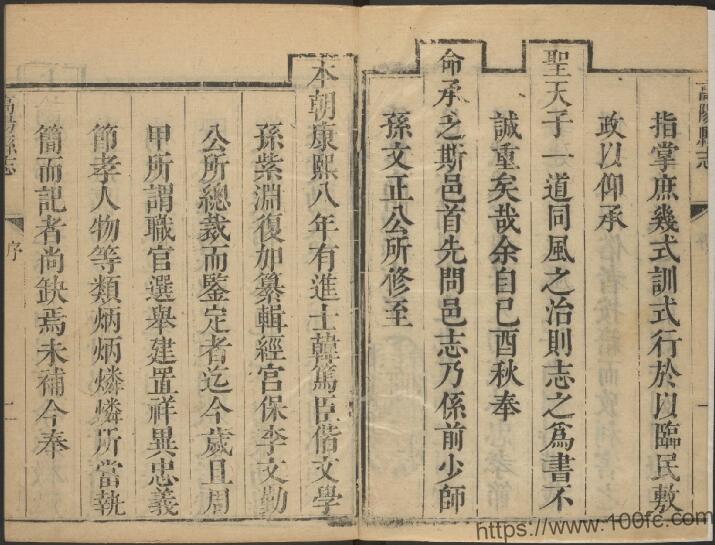 高陽縣志
指掌庶幾式訓式行於以臨民敷
政以仰承
聖天子一道同風之治則志之為書不
誠重矣哉余自己酉秋奉
命承之斯邑首先問邑志乃係前少師
孫文正公所修至
本朝康熙八年有進士韓篤臣偕文學
孫紫淵復加纂輯經宮保李文勤
公所總裁而鑒定者迄今歲且周
甲所謂職官選舉建置祥異忠義
節孝人物等類炳炳燐燐所當執
簡而記者尚缺焉未補今奉
高陽縣志
序
二
https://www.100fc.com